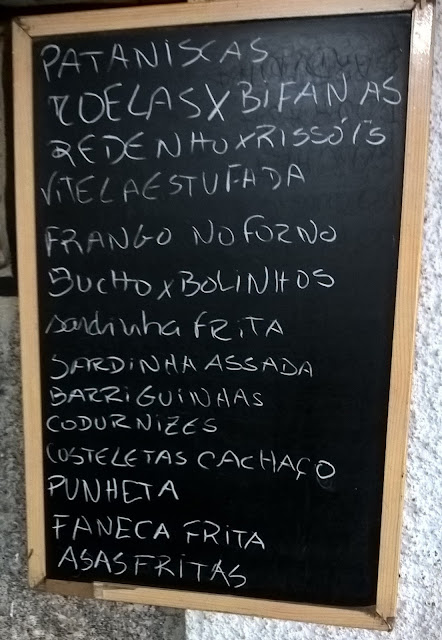 PATANISCAS
ROELAS X BIFANAS
REDENHO X RISSÓIS
VITELA ESTUFADA
FRANGO NO FORNO
BUCHO X BOLINHOS
sardinha FRITA
SARDINHA ASSADA
BARRIGUINHAS
CODURNIZES
COSTELETAS CACHAÇO
PUNHETA
FANECA FRITA
ASAS FRITAS